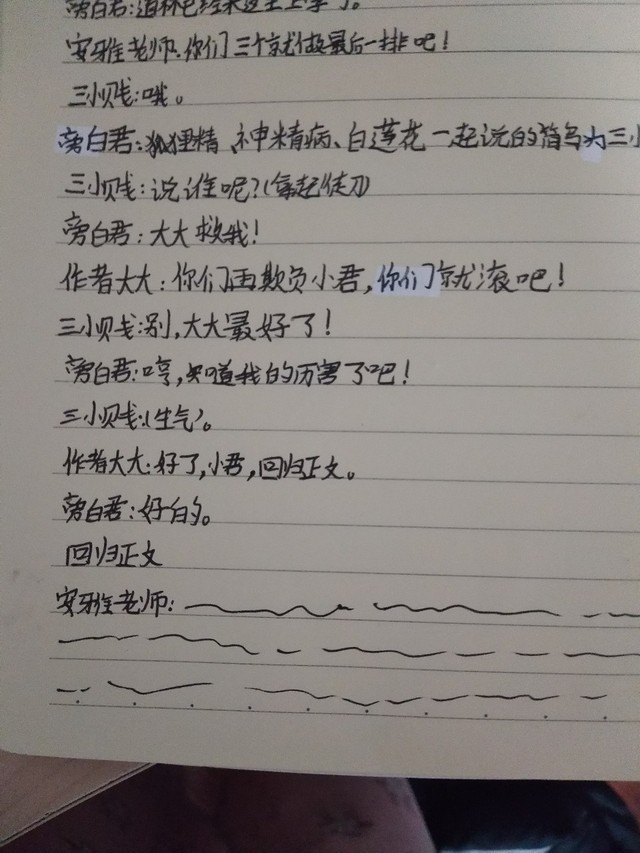 旁白君:道林已经来这里上学了。
安雅老师:你们三个就做最后一排吧!
三小贱:哦。
旁白君:狐狸精、神精病、白莲花一起说的简写为三小
三小贱:说谁呢?(拿起徒刀)
旁白君:大大救我!
作者大大:你们再欺负小君,你们就滚吧!
三小贱:别,大大最好了!
旁白君:哼,知道我的厉害了吧!
三小贱:(生气)。
作者大大:好了,小君,回归正文。
旁白君:好的。
回归正文
安雅老师: